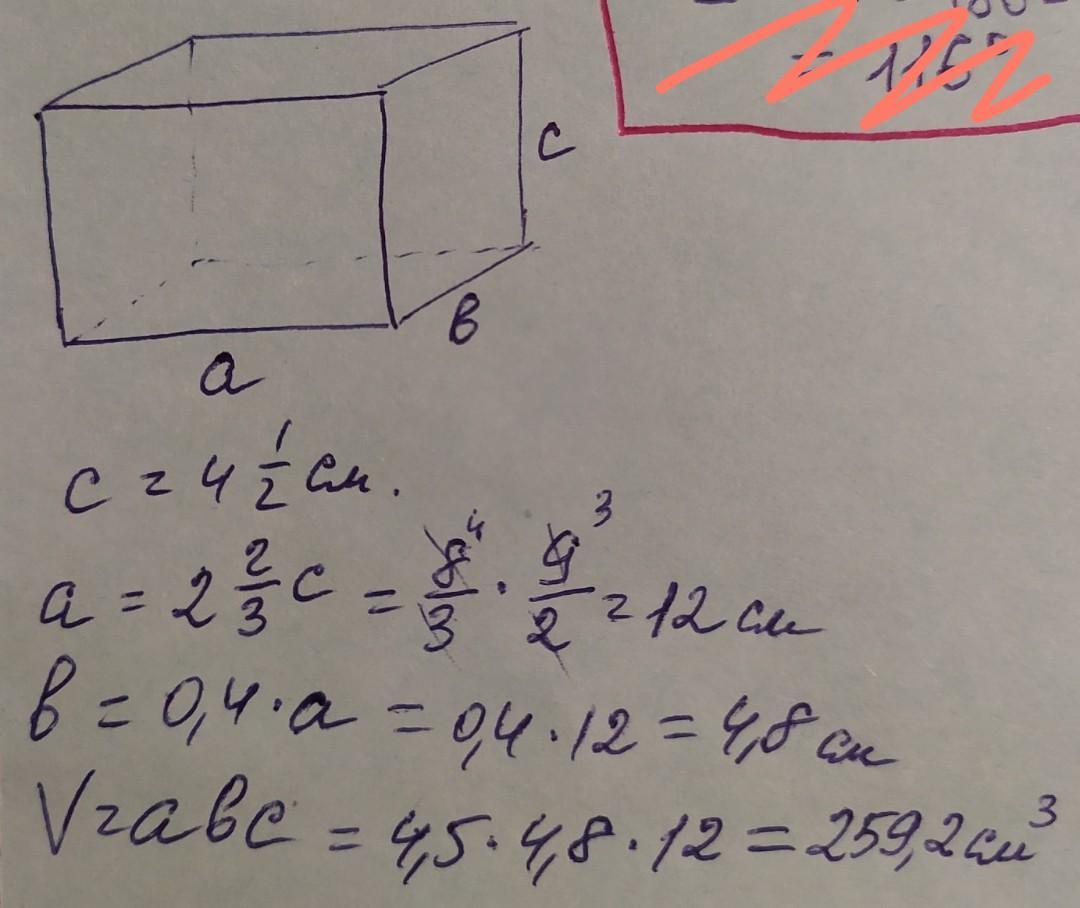 c
b
a
c = 4 1/2 см.
a = 2 2/3 c = 8/3 4 · 9/2 3 = 12 см
b = 0,4 · a = 0,4 · 12 = 4,8 см
V = abc = 4,5 · 4,8 · 12 = 259,2 см³